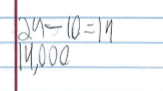 24-10=14
14,000